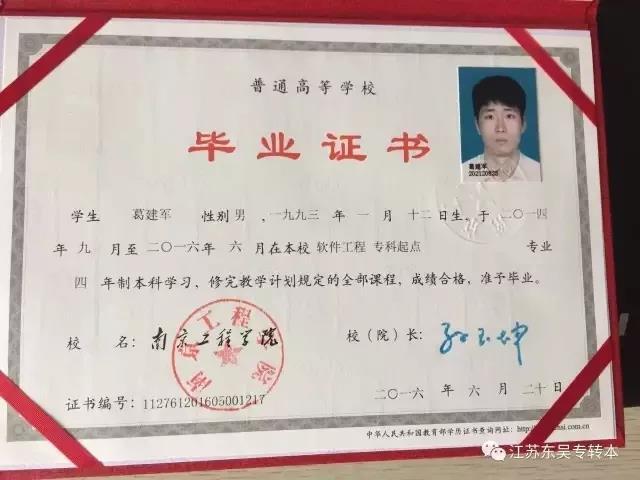 普通高等学校
毕业证书
葛建军
202120835
学生 葛建军 性别 男 ,一九九三 年 一 月 十二 日生,于 二〇一四
年 九 月至 二〇一六 年 六 月在本校 软件工程 专科起点 专业
四 年制本科学习,修完教学计划规定的全部课程,成绩合格,准予毕业。
校 名: 南京工程学院 校(院)长:
南京工程学院
二〇一六 年 六 月 二十 日
证书编号: 112761201605001217
中华人民共和国教育部学历证书查询网址:
江苏东吴专转本